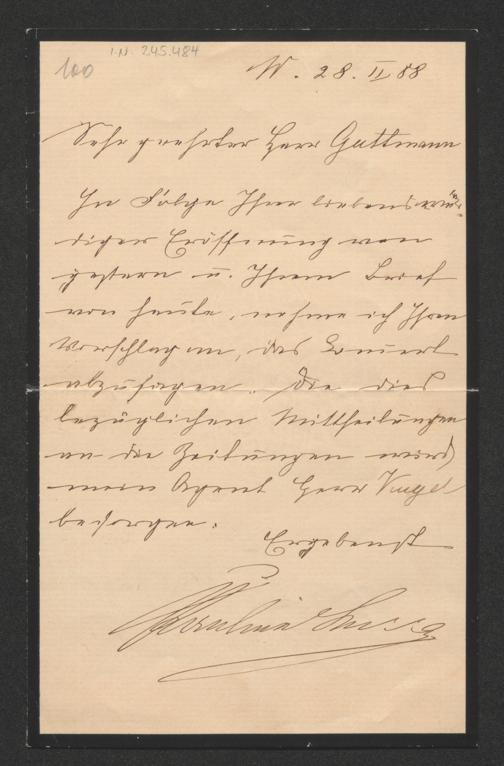 I.N. 245.484
100
W. 28. II 88
Sehr geehrter Herr Guttmann
In Folge Ihrer liebenswür
diger Eröffnung von
gestern u. Ihrem Brief
von heute, nehme ich Ihren
Vorschlag an, das Concert
abzusagen. Die dies
bezüglichen Mittheilungen
an die Zeitungen wird
mein Agent Herr Kugel
besorgen.
Ergebenst